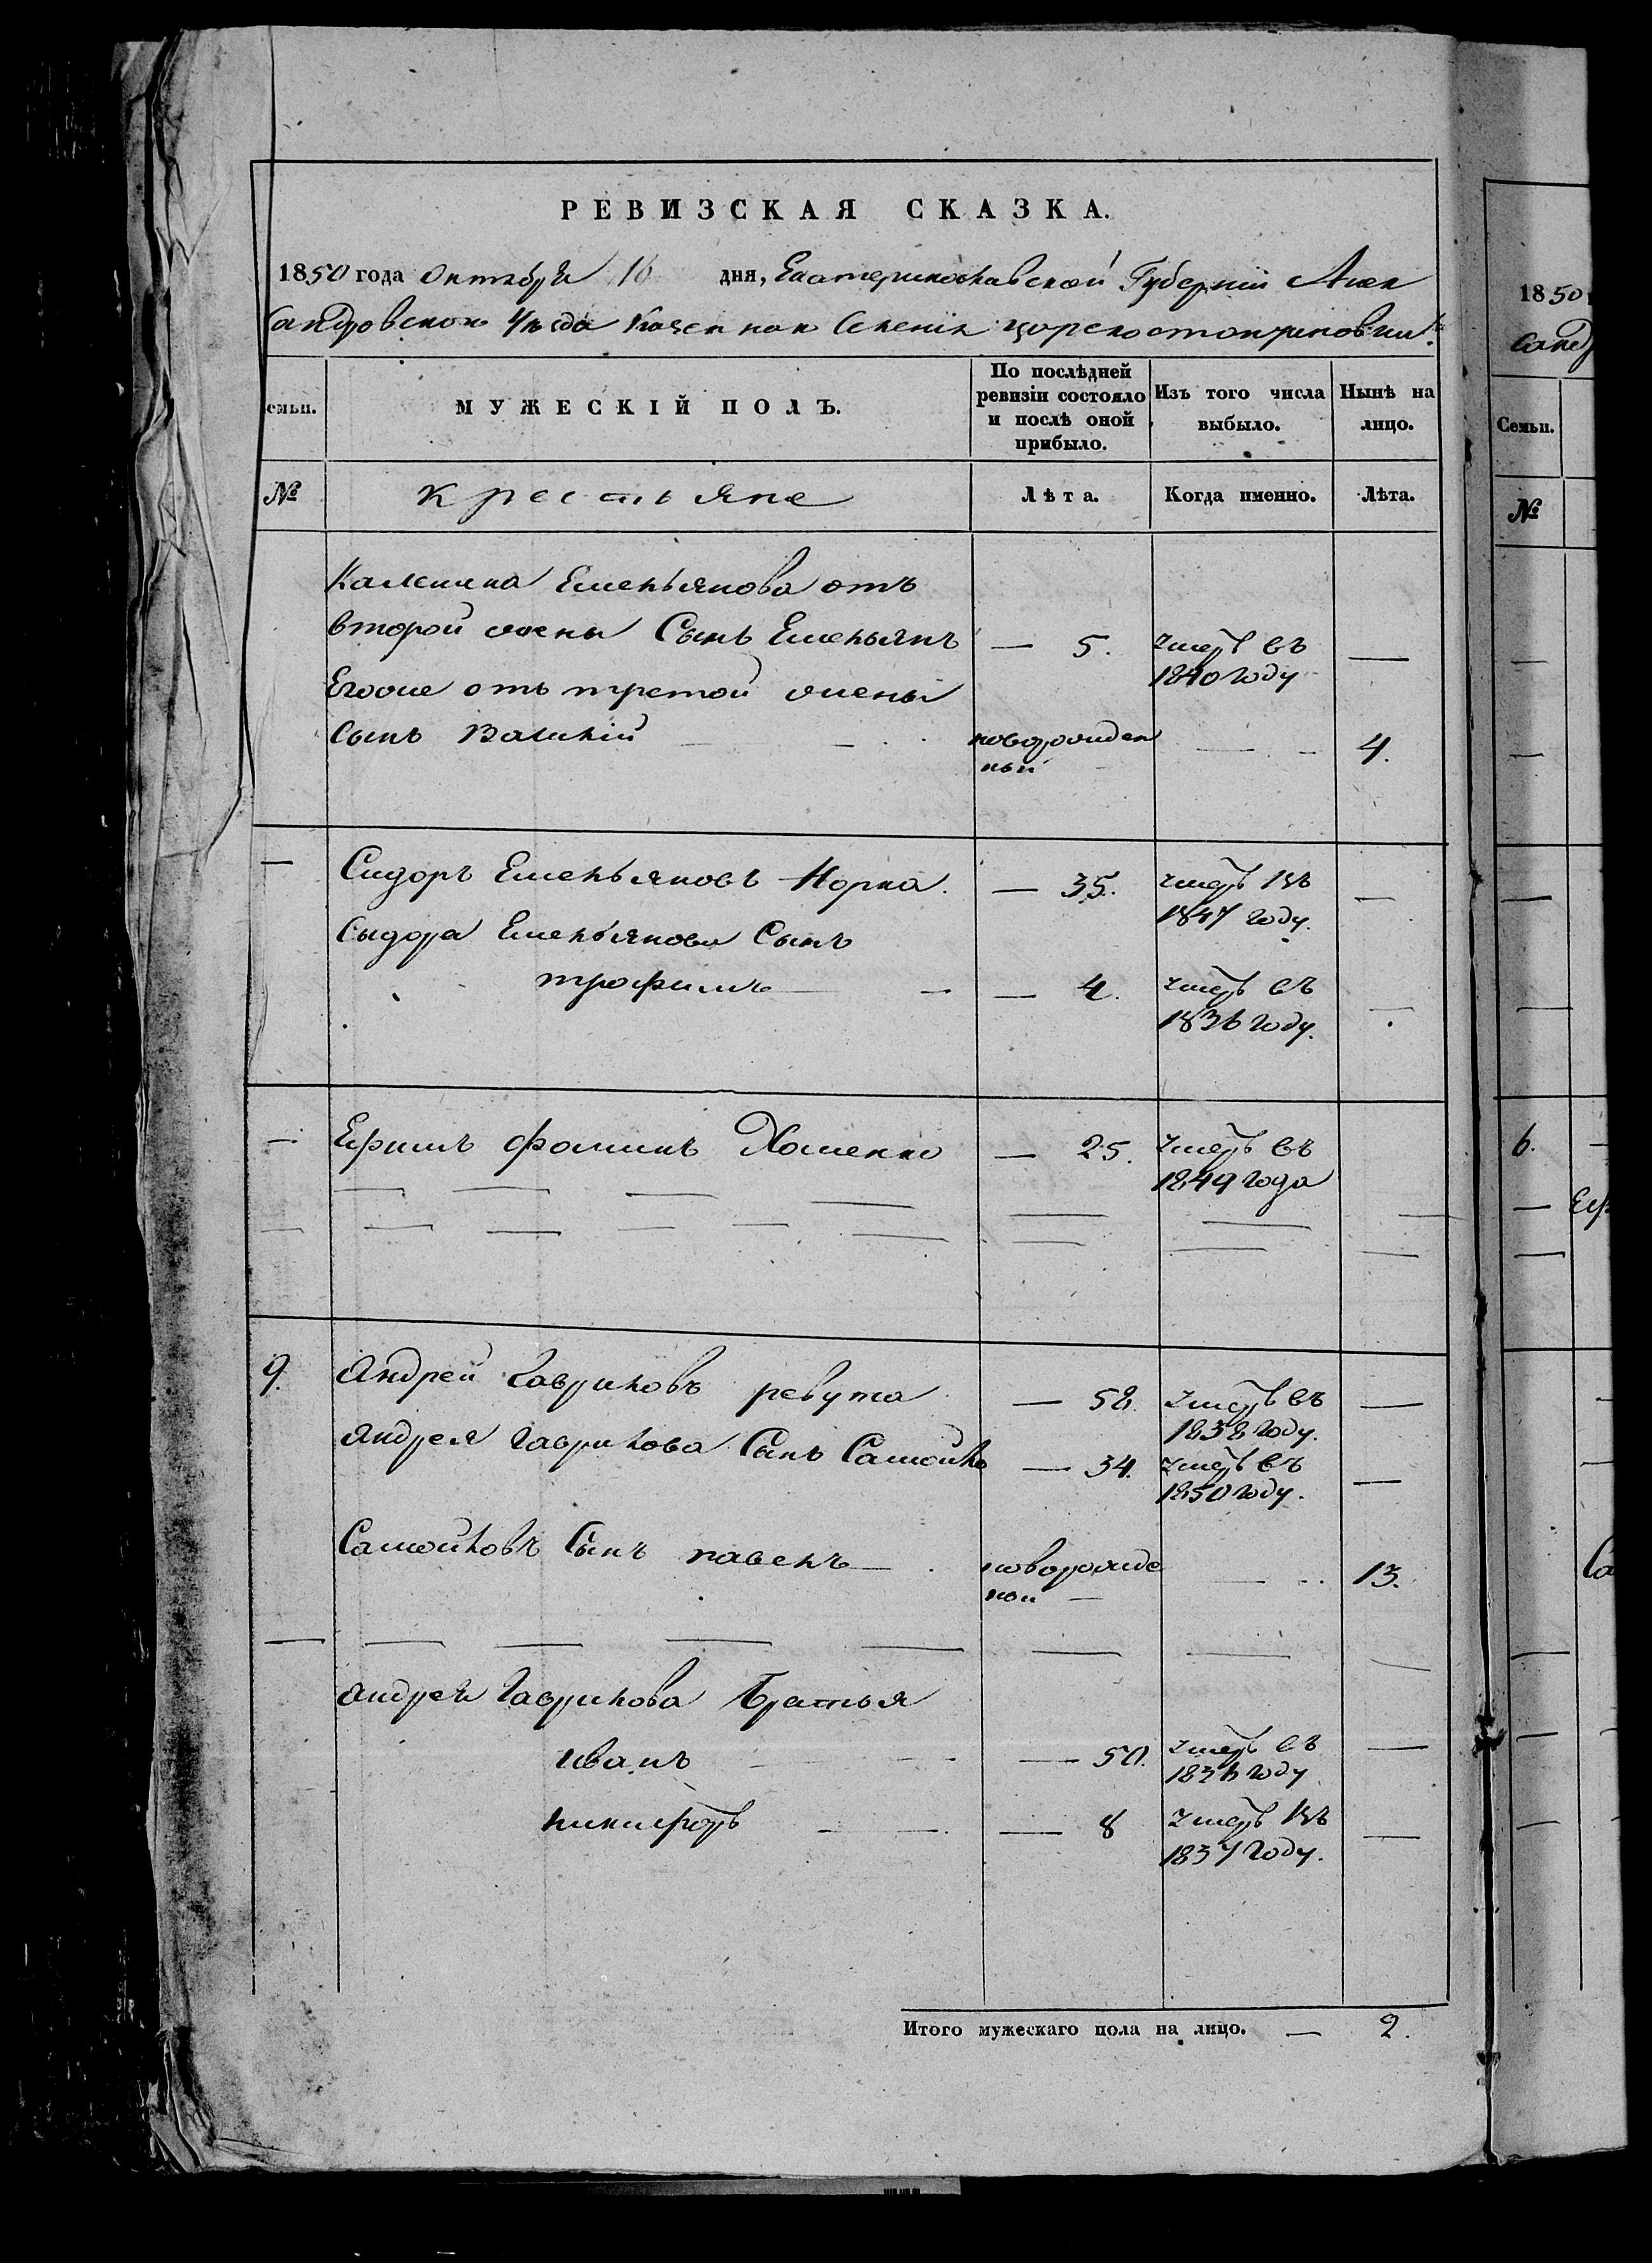 РЕВИЗСКАЯ СКАЗКА.
1850 года Октября 16 дня, Екатеринославской Губерніи Алек
сандровскаго уѣзда Казеннаго Селенія
емьи.
МУЖЕСКІЙ ПОЛЪ.
По послѣдней ревизіи состояло и послѣ оной прибыло.
Изъ того числа выбыло.
Нынѣ на лицо.
№
Крестьяне
Лѣта.
Когда именно.
Лѣта.
Емельянова отъ
второй жены Сынъ Емельянъ — 5. умеръ въ 1840 году —
Егоже отъ третой жены
Сынъ Василій новорожден ный — 4.
— Сидоръ Емельяновъ Норка. — 35. умеръ въ 1847 году. —
Сыдора Емельянова Сынъ
трофимъ — 4. умеръ въ 1836 году. —
— Ефимъ Фоминъ Хоменко — 25. умеръ въ 1849 года
9. Андрей Гавриловъ ревута — 58. умеръ въ 1838 году. —
Андрея Гаврилова Сынъ Самойло — 34. умеръ въ 1850 году. —
Самойловъ Сынъ павелъ — новорожде ной — 13.
Андрея Гаврилова Братья
иванъ — 50. умеръ въ году —
никифоръ — 8 умеръ въ 1837 году. —
Итого мужескаго пола на лицо. — 2.
1850
санд
Семьи.
№
6.